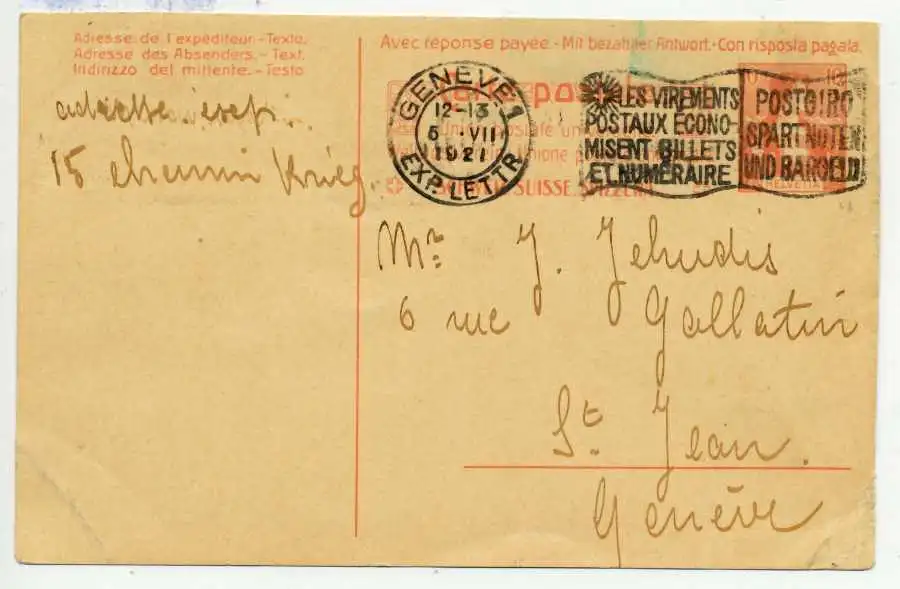 Adresse de l'expéditeur.-Texte.
Adresse des Absenders.-Text.
Indirizzo del mittente.-Testo.
15 chemin Krieg.
Avec réponse payée.-Mit bezahlter Antwort.-Con risposta pagata.
GENÈVE 1
12-13
VII
1921
EXP. LETTR
LES VIREMENTS
POSTAUX ÉCONO-
MISENT BILLETS
ET NUMÉRAIRE
POSTGIRO
SPART NOTEN
UND BARGELD
SUISSE. SVIZZERA
HELVETIA
Mr. J. Jehudis
6 rue Gallatin
St. Jean.
Genève